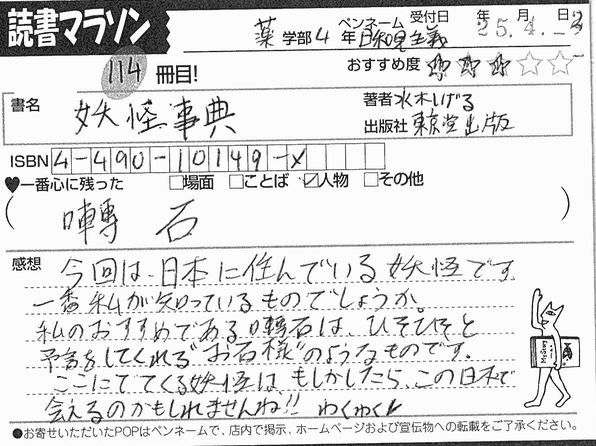 読書マラソン
薬 学部 4 年 ペンネーム 日和見主義 受付日 25年 4月 3日
114 冊目!
おすすめ度 ★★★☆☆
書名 妖怪事典
著者 水木しげる
出版社 東京堂出版
ISBN 4-490-10149-X
♥一番心に残った □場面 □ことば ☑人物 □その他
( 囀石 )
感想 今回は、日本に住んでいる妖怪です。
一番私が知っているものでしょうか。
私のおすすめである囀石は、ひそひそと
予言をしてくれる"お石様"のようなものです。
ここにでてくる妖怪は、もしかしたら、この日本で
会えるのかもしれませんね!! わくわく
●お寄せいただいたPOPはペンネームで、店内で掲示、ホームページおよび宣伝物への転載をご了承ください。